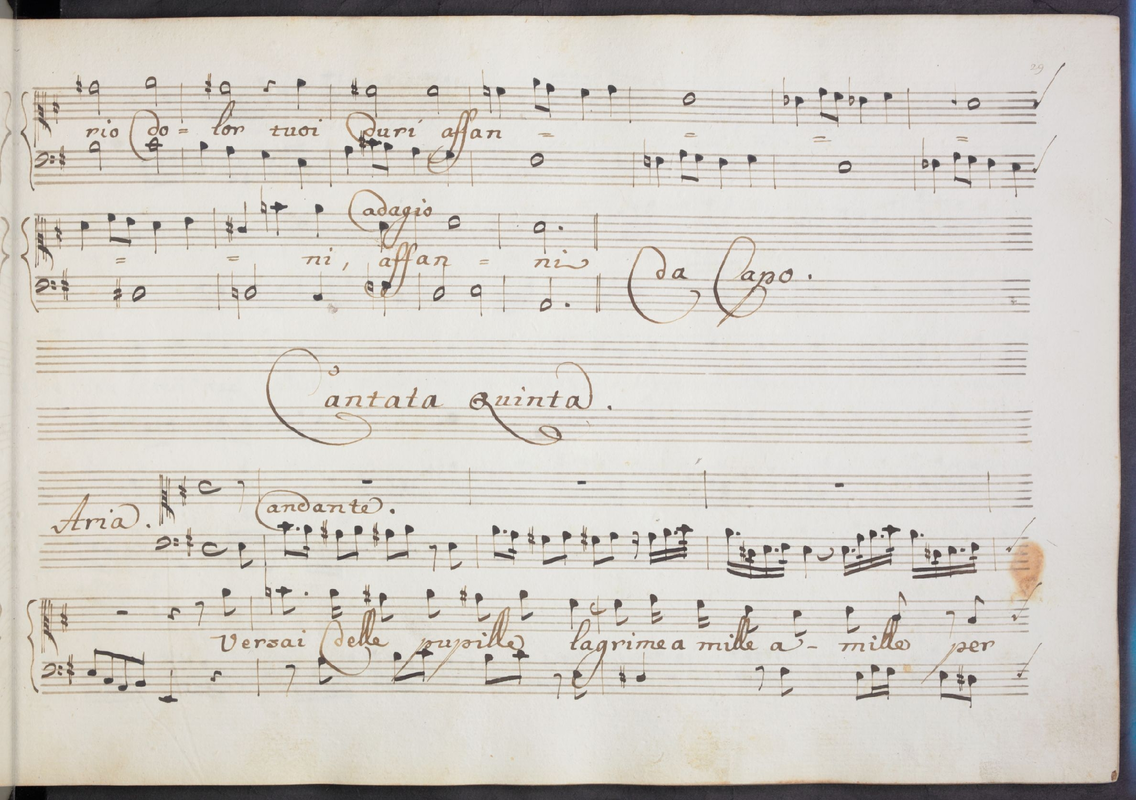 29
rio do = lor tuoi duri affan = = = =
adagio
= = ni, affan = ni
Da Capo.
Cantata Quinta.
Aria. andante.
Versai delle pupille lagrime a mille a - mille per